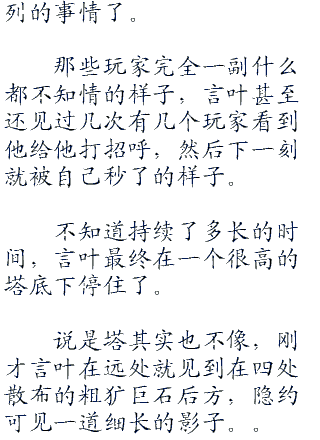 列的事情了。
那些玩家完全一副什么
都不知情的样子，言叶甚至
还见过几次有几个玩家看到
他给他打招呼，然后下一刻
就被自己秒了的样子。
不知道持续了多长的时
间，言叶最终在一个很高的
塔底下停住了。
说是塔其实也不像，刚
才言叶在远处就见到在四处
散布的粗犷巨石后方，隐约
可见一道细长的影子。。